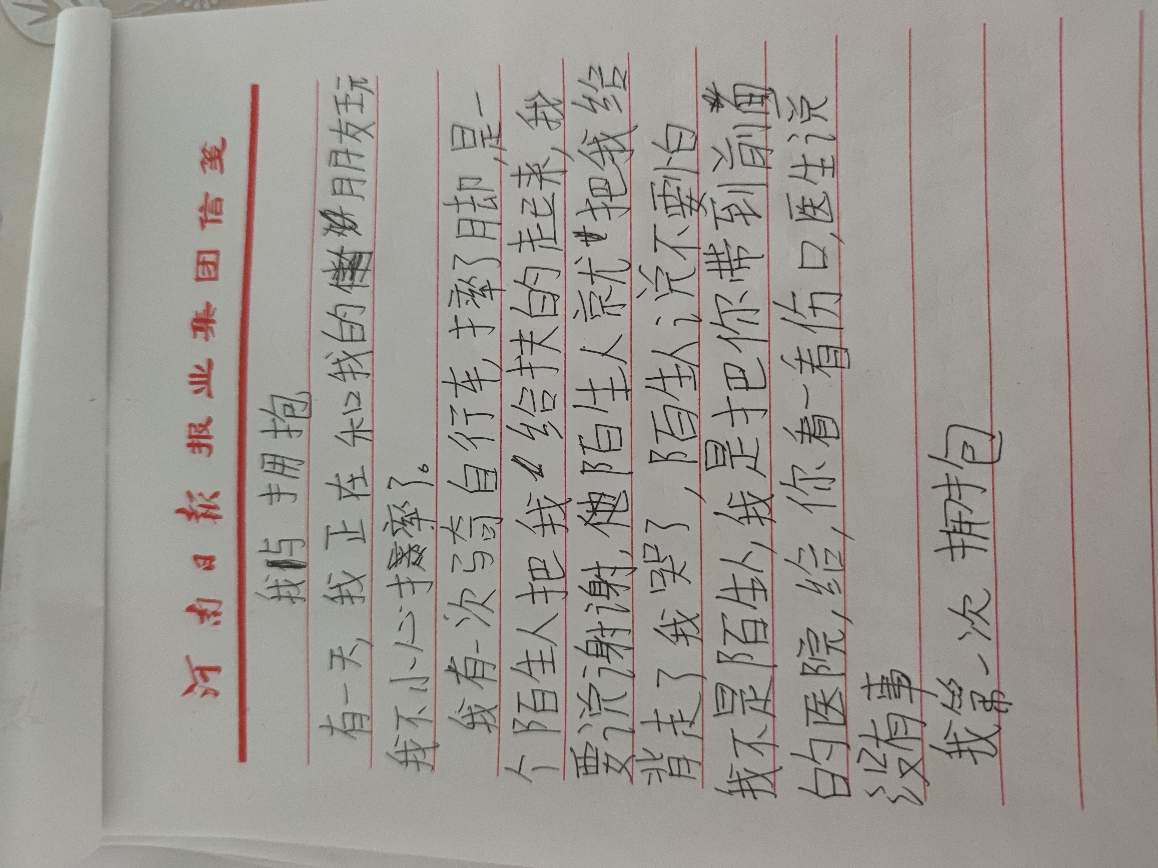 河南日报报业集团信笺
我与拥抱
有一天,我正在和我的朋友玩
我不小心摔了。
我有一次骑自行车,摔了用却,是一
个陌生人把我给扶的起来,我
要说谢谢,陌生人就把我给
背走了我哭了,陌生人说不要怕
我不是陌生人,我是把你带到前面
的医院,给,你看一看伤口,医生说
没有事
我第一次拥抱